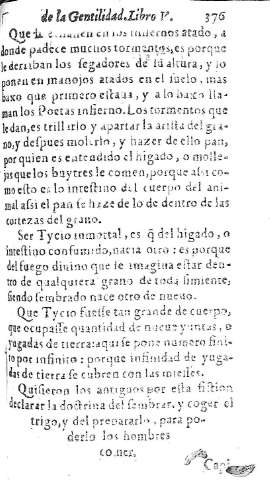 de la Gentilidad. Libro V. 376
Que le en los infiernos atado, a
donde padece muchos tormentos, es porque
le derriban los segadores de su altura, y lo
ponen en manojos atados en el suelo, mas
baxo que primero estaua, y a lo baxo lla-
man los Poetas infierno. Los tormentos que
le dan, es trillarlo y apartar la arista del gra-
no, y despues molerlo, y hazer de ello pan,
por quien es entendido el higado, o molle-
jas que los buytres le comen, porque assi co-
mo esto es lo intestino del cuerpo del ani-
mal assi el pan se haze de lo de dentro de las
cortezas del grano.
Ser Tycio inmortal, es q̃ del higado, o
intestino consumido, nacia otro: es porque
del fuego diuino que se imagina estar den-
tro de qualquiera grano de toda simiente,
siendo sembrado nace otro de nueuo.
Que Tycio fuesse tan grande de cuerpo,
que ocupasse quantidad de nueue yuntas, o
yugadas de tierra: aqui se pone numero fini-
to por infinito: porque infinidad de yuga-
das de tierra se cubren con las miesses.
Quisieron los antiguos por esta fiction
declarar la doctrina del sembrar, y coger el
trigo, y del prepararlo, para po-
derlo los hombres
comer.
Capi-